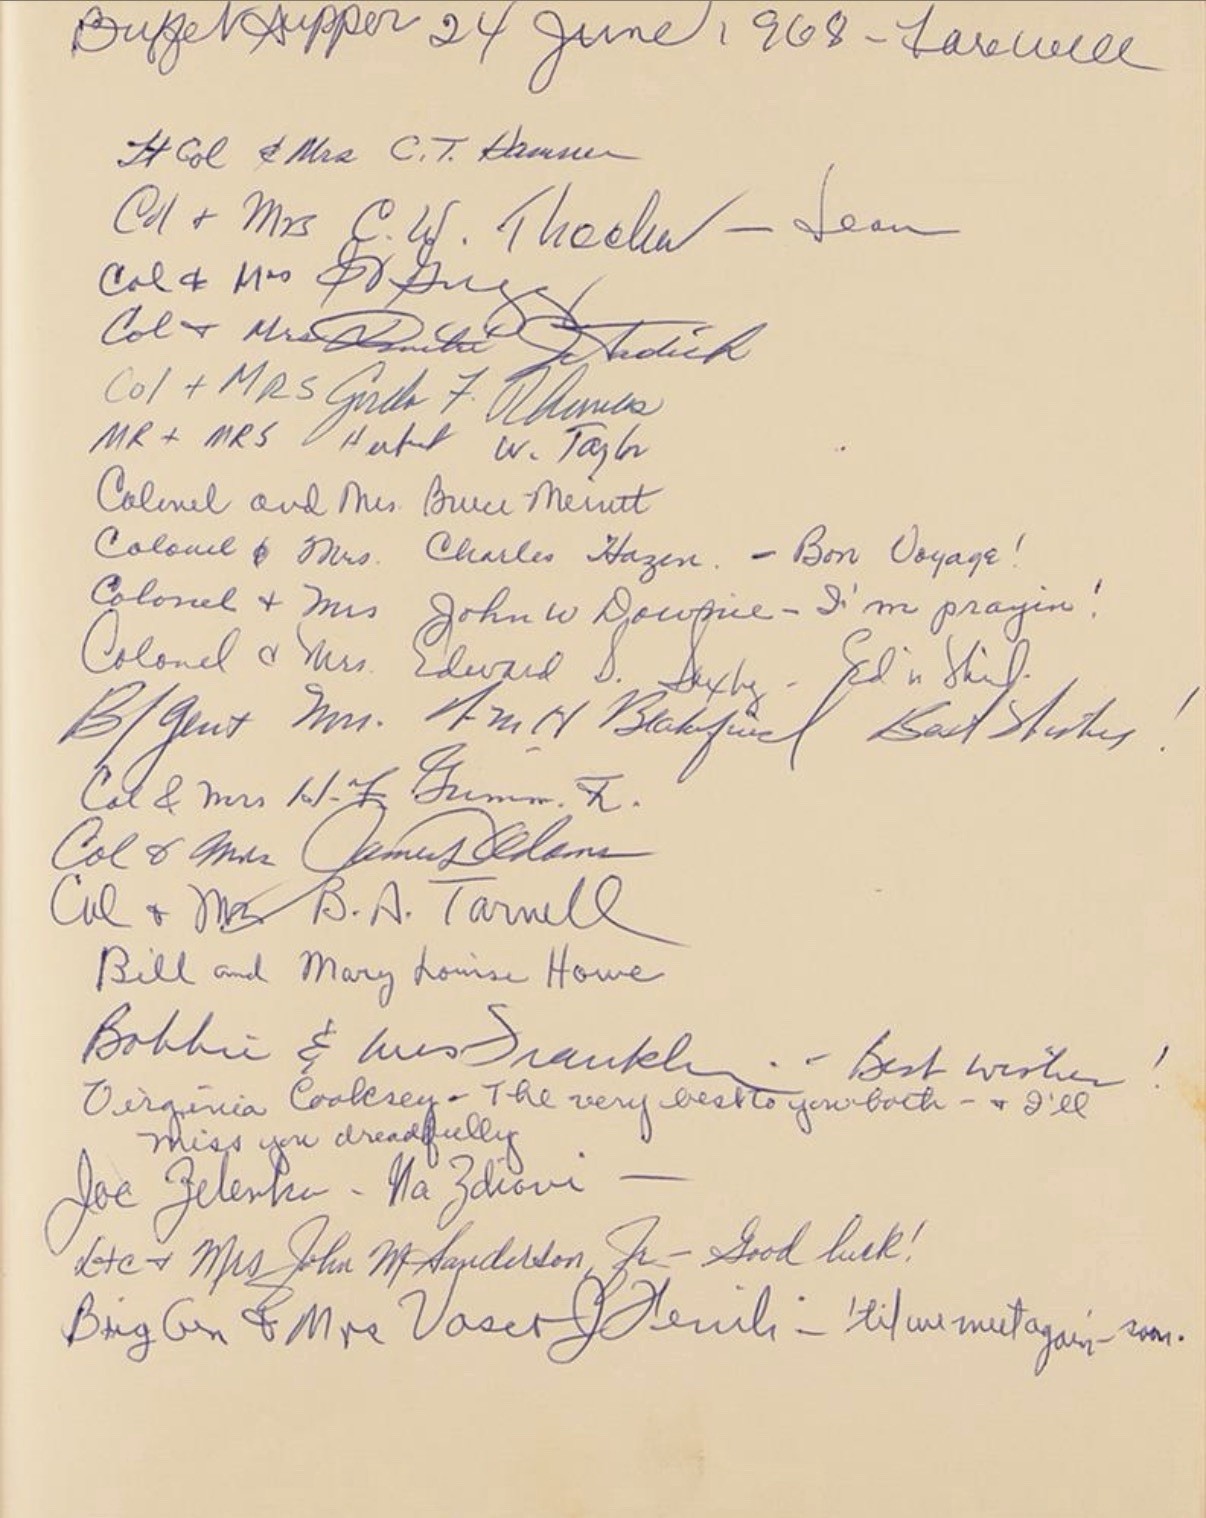 Buffet Supper 24 June 1968 - Farewell
Lt Col & Mrs C.T.
Col + Mrs C.W. - Jean
Col & Mrs
Col + Mrs
Col + MRS F.
MR + MRS Herbert W. Taylor
Colonel and Mrs. Bruce Merritt
Colonel & Mrs. Charles Hazen. - Bon Voyage!
Colonel + Mrs John W Downie - I'm prayin'!
Colonel & Mrs. Edward S. Saxby - Ed 'n
B/Gen + Mrs. Best Wishes!
Col & Mrs
Col & Mrs James Adams
Col + Mrs B. A. Tarnell
Bill and Mary Louise Howe
Bobbie & Franklin - Best wishes!
Virginia Cooksey - The very best to you both - + I'll
miss you dreadfully
Joe Zelenka - Na Zdravi -
Ltc + Mrs John M Sanderson, Jr - Good luck!
Brig Gen & Mrs - 'til we meet again - soon.